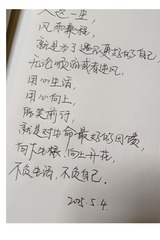 人这一生，
风雨兼程，
就是为了遇见更好的自己，
无论顺境或者逆风，
用心生活，
用心向上，
微笑前行，
就是对生命最好的回馈，
向下生根，向上开花，
不负生活，不负自己。
2025.5.4.